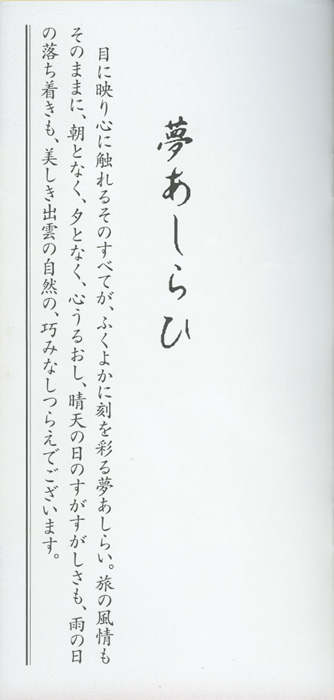 夢あしらひ
目に映り心に触れるそのすべてが、ふくよかに刻を彩る夢あしらい。旅の風情も
そのままに、朝となく、夕となく、心うるおし、晴天の日のすがすがしさも、雨の日
の落ち着きも、美しき出雲の自然の、巧みなしつらえでございます。